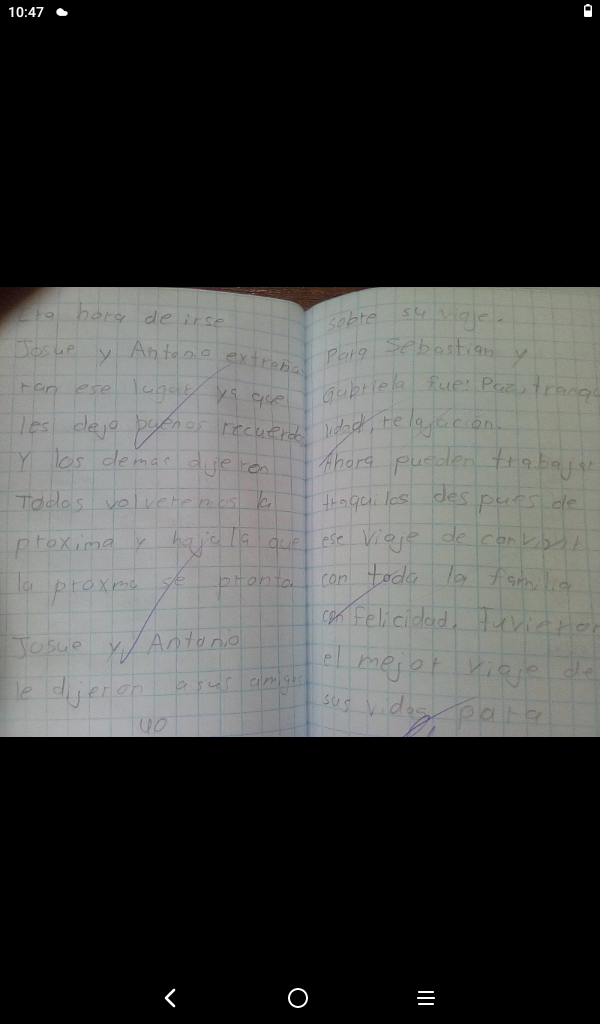 10:47
Era hora de irse
Josue y Antonio extraña
ran ese lugar ya que
les dejo buenos recuerdo
Y los demas dijeron
Todos volveremos la
proxima y hajala que
la proxma se pronta
Josue y Antonio
le dijeron a sus amigos
40
sobre su viaje.
Para Sebastian y
Gabriela fue: Paz, tranqu
ilidad, relajacion.
Ahora pueden trabajar
traquilos des pues de
ese viaje de convivir
con toda la familia
con felicidad. Tuvieron
el mejor viaje de
sus vidas para